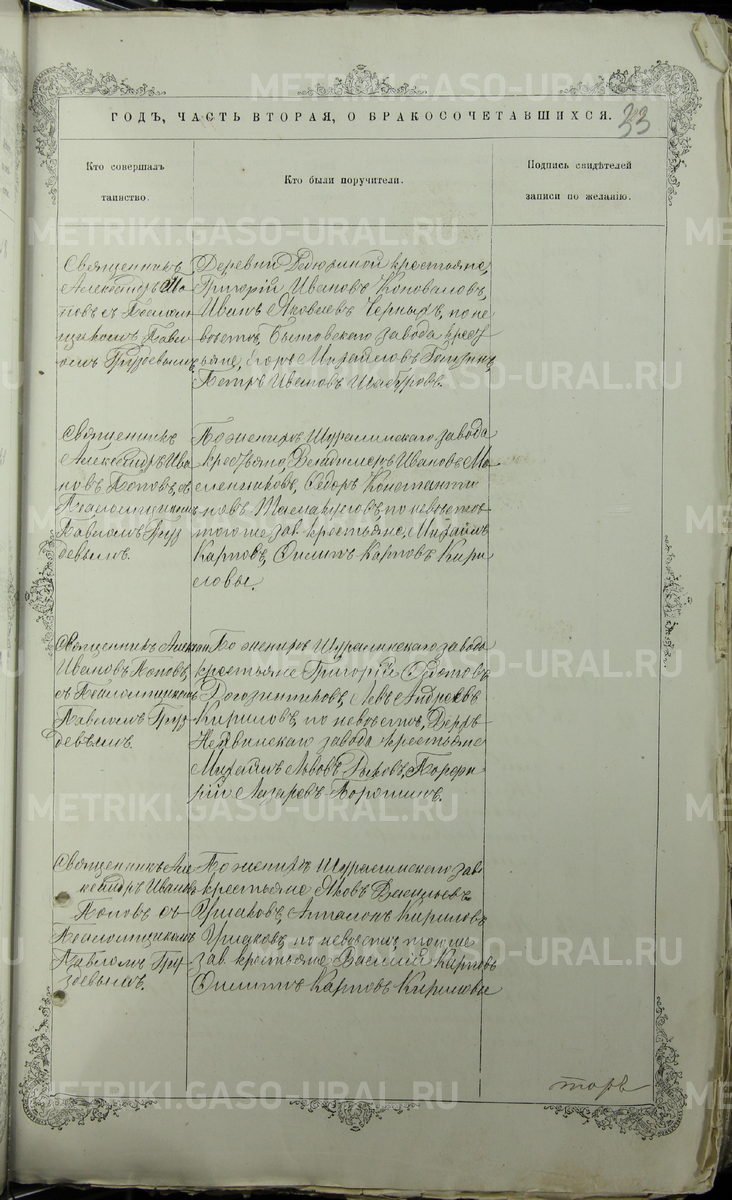 ГОДЪ, ЧАСТЬ ВТОРАЯ, О БРАКОСОЧЕТАВШИХСЯ.
33
Кто совершалъ
таинство.
Кто были поручители.
Подпись свидѣтелей
записи по желанію.
Священникъ
Александръ
повъ съ Псалом
щикомъ Павло
омъ
Деревни крестьяне,
Григорій Ивановъ Коноваловъ,
Иванъ Яковлевъ Черныхъ, по не
вѣстѣ, завода крест
ьяне, Егоръ Михайловъ
Петръ Ивановъ
Священникъ
Александръ Ива
новъ Поповъ, съ
Псаломщикомъ
Павломъ Груз
девымъ.
По женихѣ Шуралинскаго завода
крестьяне, Владимеръ Ивановъ Ма
сленниковъ, Ѳедоръ Константи
новъ по невѣстѣ
того же зав. крестьяне, Михайлъ
Карповъ, Филипъ Карповъ Кири
ловы.
Священникъ Алексан
Ивановъ Поповъ,
съ Псаломщикомъ
Павломъ Груз
девымъ.
По женихѣ Шуралинскаго завода
крестьяне Григорій
Левъ Андреевъ
Кириловъ, по невѣстѣ, Верхъ
Нейвинскаго завода крестьяне
Михайлъ Львовъ Порфи
рій Лазаревъ
Священникъ Але
ксандръ Ивановъ
Поповъ съ
Псаломщикомъ
Павломъ Гру
здевымъ.
По женихѣ Шуралинскаго зав.
крестьяне Яковъ Васильевъ
Ушаковъ, Кириловъ
Ушаковъ, по невѣстѣ, того же
зав. крестьяне Василій Карповъ
Филипъ Карповъ Кириловы
METRIKI.GASO-URAL.RU